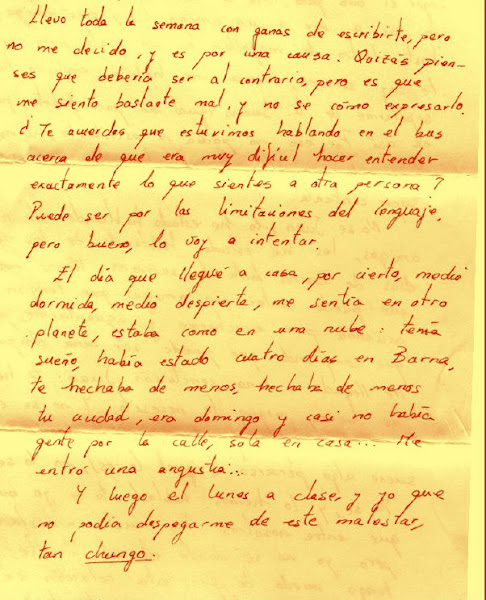 Llevo toda la semana con ganas de escribirte, pero
no me decido, y es por una causa. Quizás pien-
ses que debería ser al contrario, pero es que
me siento bastante mal, y no se cómo expresarlo.
¿Te acuerdas que estuvimos hablando en el bus
acerca de que era muy difícil hacer entender
exactamente lo que sientes a otra persona?
Puede ser por las limitaciones del lenguaje,
pero bueno, lo voy a intentar.
El día que llegué a casa, por cierto, medio
dormida, medio despierta, me sentía en otro
planeta, estaba como en una nube: tenía
sueño, había estado cuatro días en Barna,
te hechaba de menos, hechaba de menos
tu ciudad, era domingo y casi no había
gente por la calle, sola en casa... Me
entró una angustia...
Y luego el lunes a clase, y yo que
no podía despegarme de este malestar,
tan chungo.